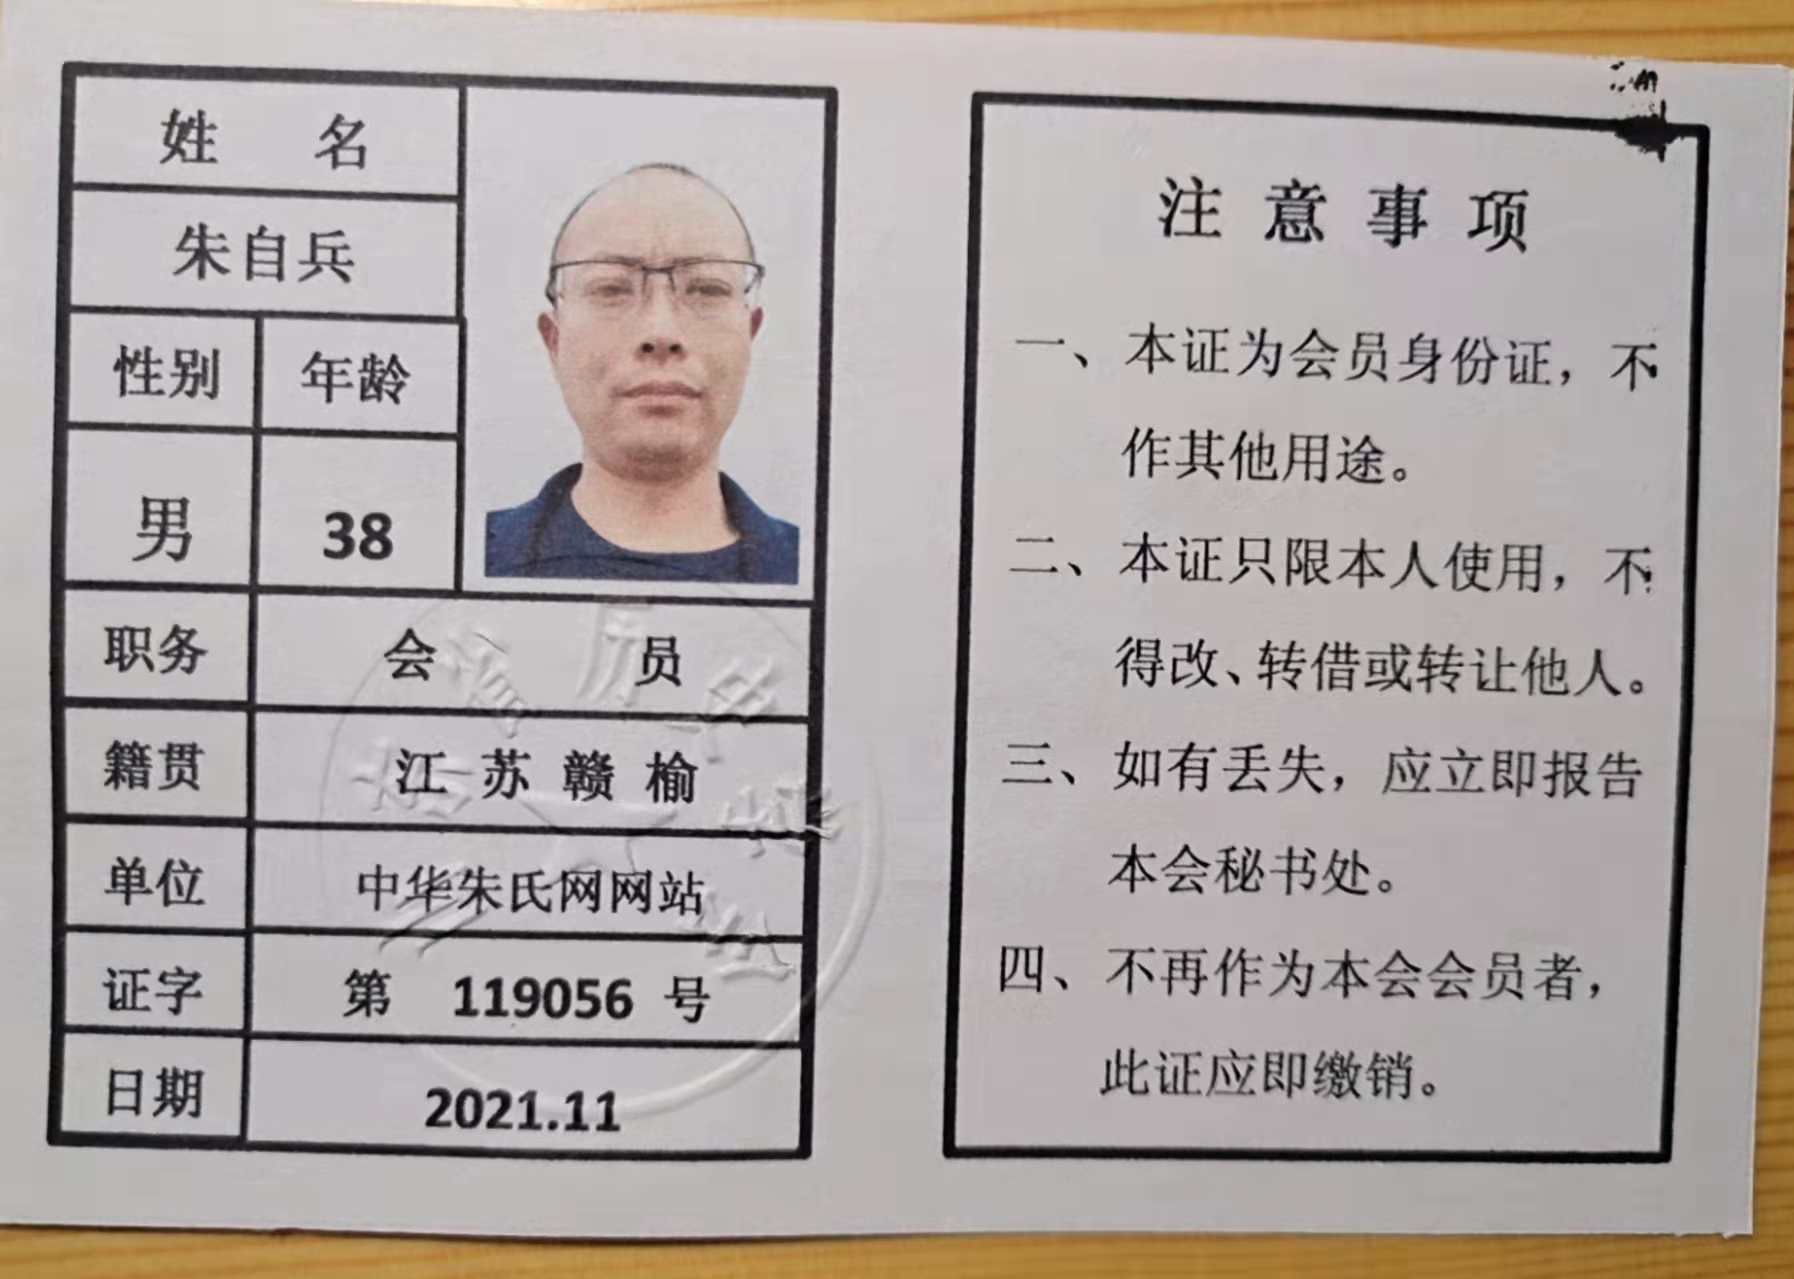 姓 名
朱自兵
性别 年龄
男 38
职务 会 员
籍贯 江 苏 赣 榆
单位 中华朱氏网网站
证字 第 119056 号
日期 2021.11
注 意 事 项
一、本证为会员身份证，不
作其他用途。
二、本证只限本人使用，不
得改、转借或转让他人。
三、如有丢失，应立即报告
本会秘书处。
四、不再作为本会会员者，
此证应即缴销。